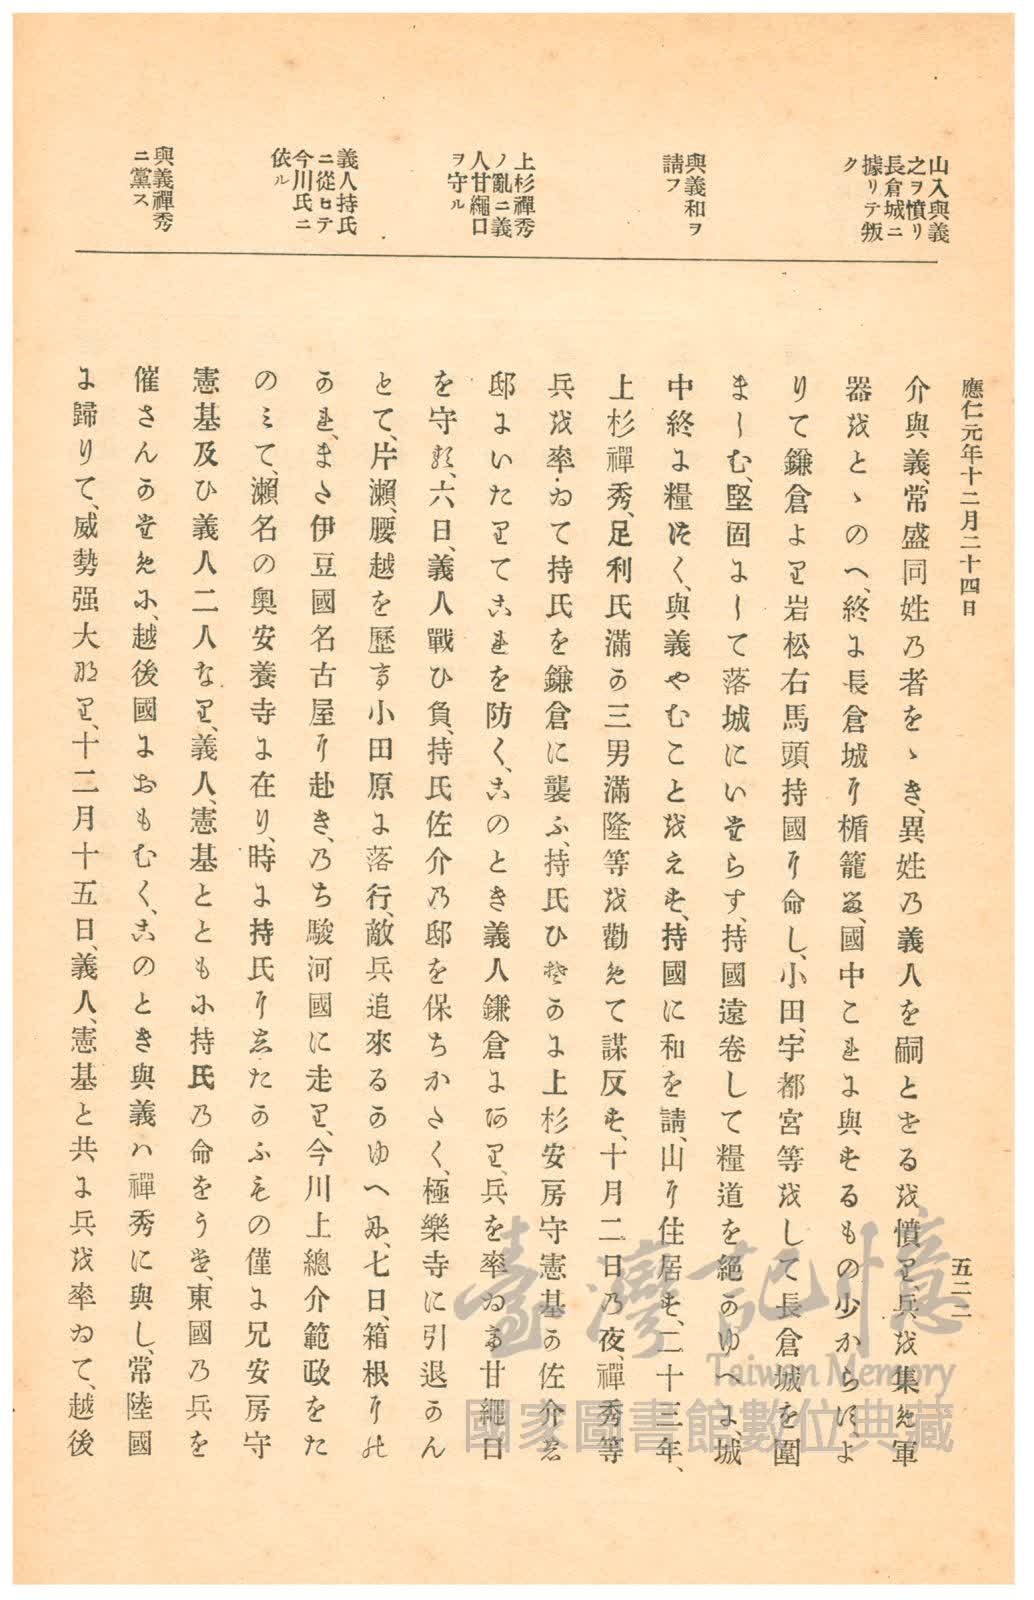 應仁元年十二月二十四日
五二二
山入與義
之ヲ憤リ
長倉城ニ
據リテ叛
ク
與義和ヲ
請フ
上杉禪秀
ノ亂ニ義
人甘繩口
ヲ守ル
義人持氏
ニ從ヒテ
今川氏ニ
依ル
與義禪秀
ニ黨ス
介與義、常盛同姓乃者をゝき、異姓乃義人を嗣とせるを憤り、兵を集めて軍
器をとゝのへ、終に長倉城に楯籠る、國中これに與するもの少からす、よ
りて鎌倉より岩松右馬頭持國に命し、小田、宇都宮等をして長倉城を圍
ましむ、堅固にして落城にいたらす、持國遠卷して糧道を絕かゆへに、城
中終に糧つく、與義やむことをえす、持國に和を請、山に住居す、二十三年、
上杉禪秀、足利氏滿の三男滿隆等を勸めて謀反す、十月二日乃夜、禪秀等
兵を率ゐて持氏を鎌倉に襲ふ、持氏ひそかに上杉安房守憲基の佐介か
邸にいたりてこれを防く、このとき義人鎌倉にあり、兵を率ゐて甘繩口
を守る、六日、義人戰ひ負、持氏佐介乃邸を保ちかたく、極樂寺に引退かん
とて、片瀨、腰越を歷て小田原に落行、敵兵追來るかゆへに、七日、箱根にの
かれ、また伊豆國名古屋に赴き、乃ち駿河國に走り、今川上總介範政をた
のミて、瀨名の奧安養寺に在り、時に持氏にしたかふものの僅に兄安房守
憲基及ひ義人二人なり、義人、憲基とともに持氏乃命をうけ、東國乃兵を
催さんかために、越後國におもむく、このとき與義ハ禪秀に與し、常陸國
に歸りて、威勢强大なり、十二月十五日、義人、憲基と共に兵を率ゐて、越後
臺灣記憶
Taiwan Memory
國家圖書館數位典藏